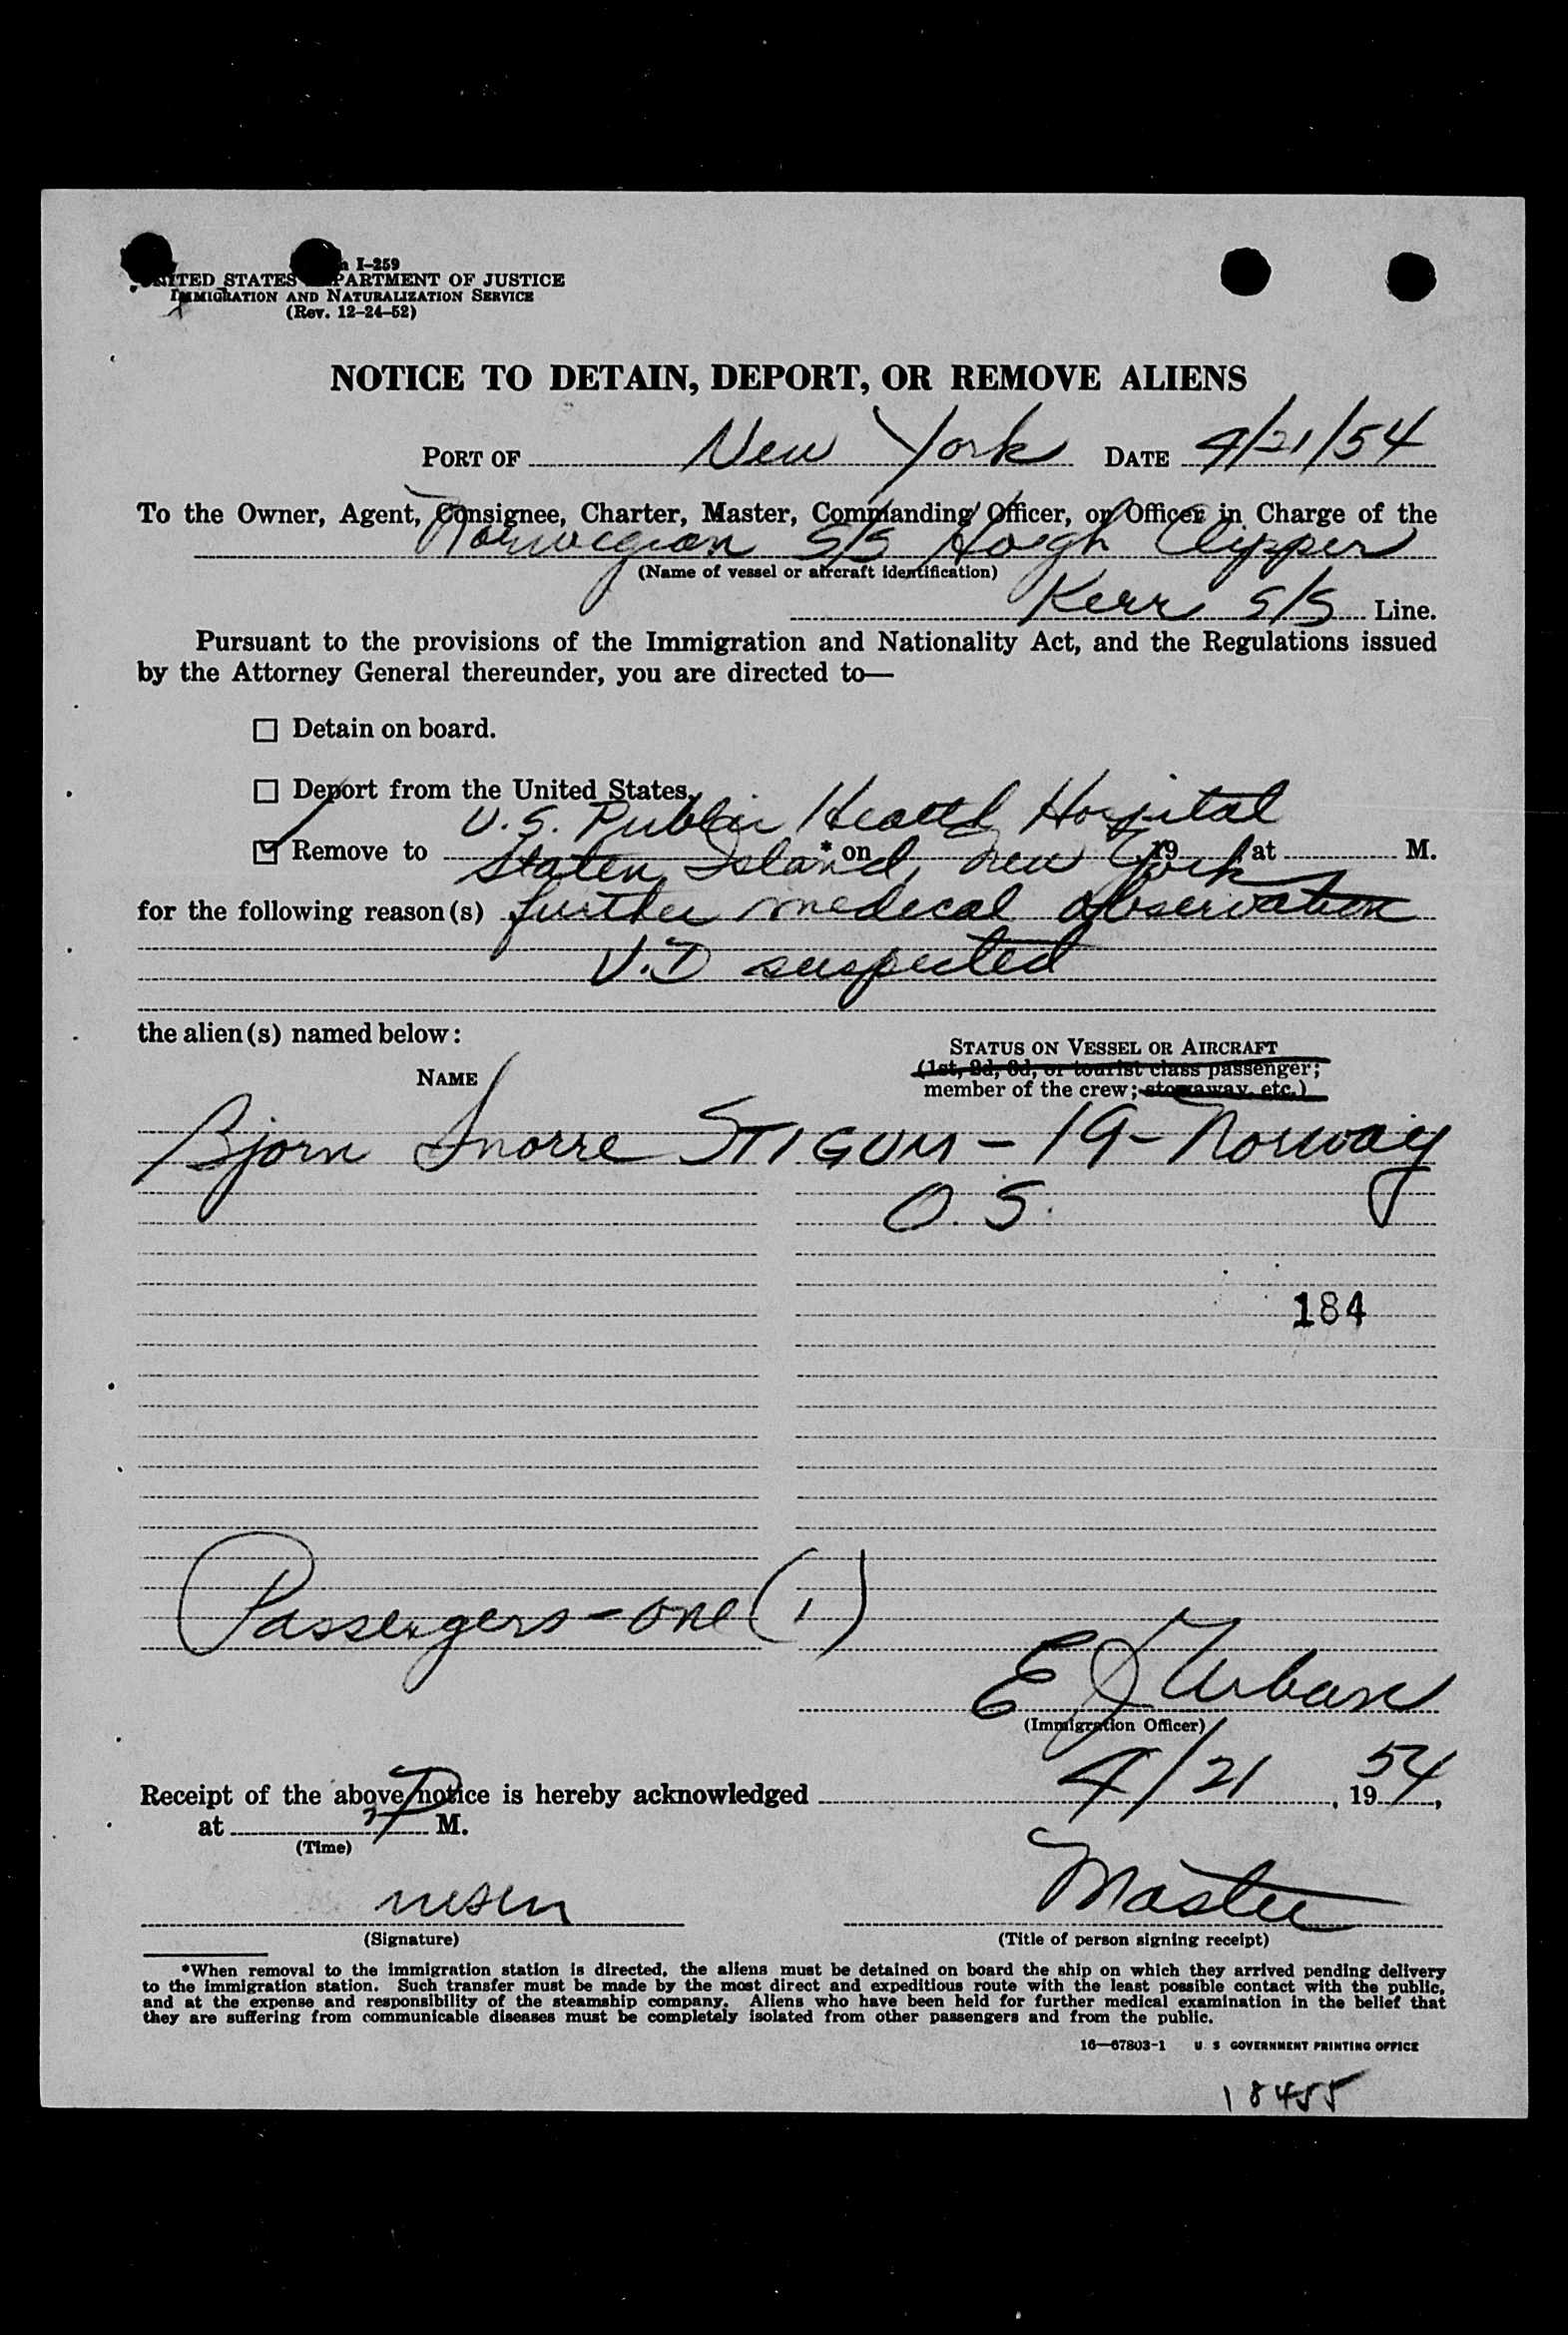 I-259
UNITED STATES DEPARTMENT OF JUSTICE
IMMIGRATION AND NATURALIZATION SERVICE
(Rev. 12-24-52)
NOTICE TO DETAIN, DEPORT, OR REMOVE ALIENS
PORT OF New York DATE 4/21/54
To the Owner, Agent, Consignee, Charter, Master, Commanding Officer, or Officer in Charge of the
Norwegian S/S Hoegh Clipper
(Name of vessel or aircraft identification)
Kerr S/S Line.
Pursuant to the provisions of the Immigration and Nationality Act, and the Regulations issued
by the Attorney General thereunder, you are directed to—
☐ Detain on board.
☐ Deport from the United States.
U.S. Public Health Hospital
☑ Remove to * on 19 at M.
Staten Island, New York
for the following reason(s) further medical observation
V.D suspected
the alien(s) named below:
STATUS ON VESSEL OR AIRCRAFT
(1st, 2d, 3d, or tourist class passenger;
NAME
member of the crew; stowaway, etc.)
Bjorn Snorre STIGUM - 19 - Norway
O. S.
184
Passengers - one (1)
E J Urban
(Immigration Officer)
Receipt of the above notice is hereby acknowledged 4/21, 1954,
at P M.
(Time)
Master
(Signature) (Title of person signing receipt)
*When removal to the immigration station is directed, the aliens must be detained on board the ship on which they arrived pending delivery
to the immigration station. Such transfer must be made by the most direct and expeditious route with the least possible contact with the public,
and at the expense and responsibility of the steamship company. Aliens who have been held for further medical examination in the belief that
they are suffering from communicable diseases must be completely isolated from other passengers and from the public.
16—67803-1 U. S. GOVERNMENT PRINTING OFFICE
18455